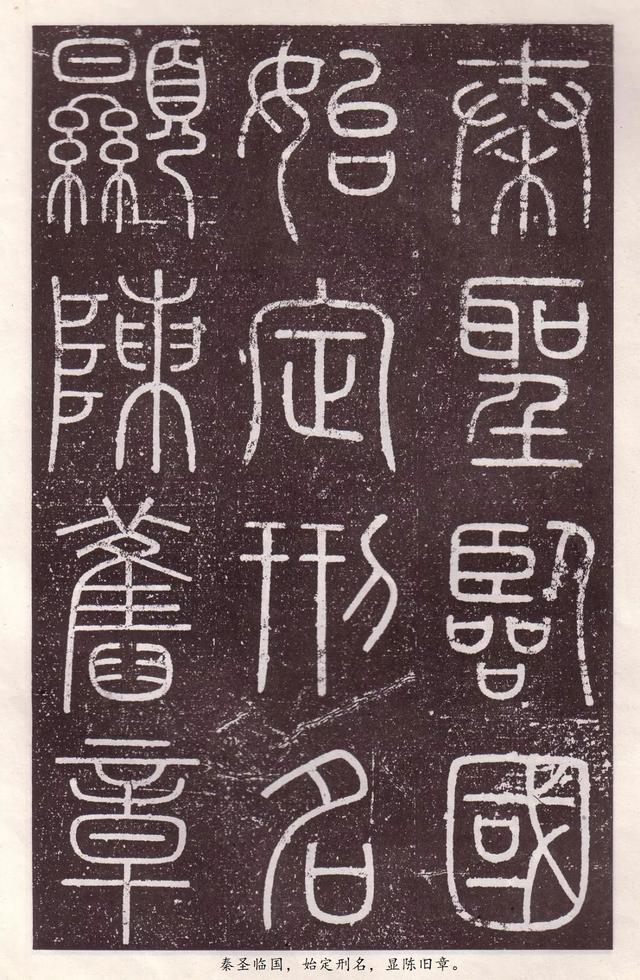 秦聖臨國
始定刑名
顯陳舊章
秦圣临国，始定刑名，显陈旧章。